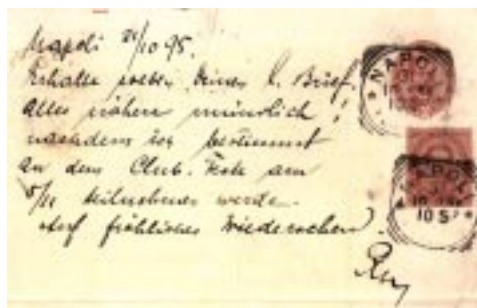 Napoli 21/10 95.
Erhalte soeben Deinen l. Brief.
Alles nähere mündlich!
nachdem ich bestimmt
an dem Club-Feste am
5/11 teilnehmen werde.
Auf fröhliches Wiedersehen!
NAPOLI
NAPOLI
10 5